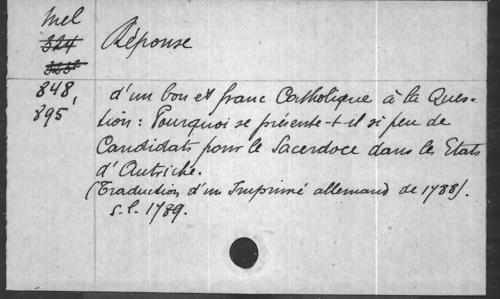 Mel
324
3253
848,
895
Réponse
d'un bon et franc Catholique à la Ques-
tion: Pourquoi se présente-t-il si peu de
Candidats pour le Sacerdoce dans les Etats
d'Autriche.
(Traduction d'un Imprimé allemand de 1788).
s.l. 1789.